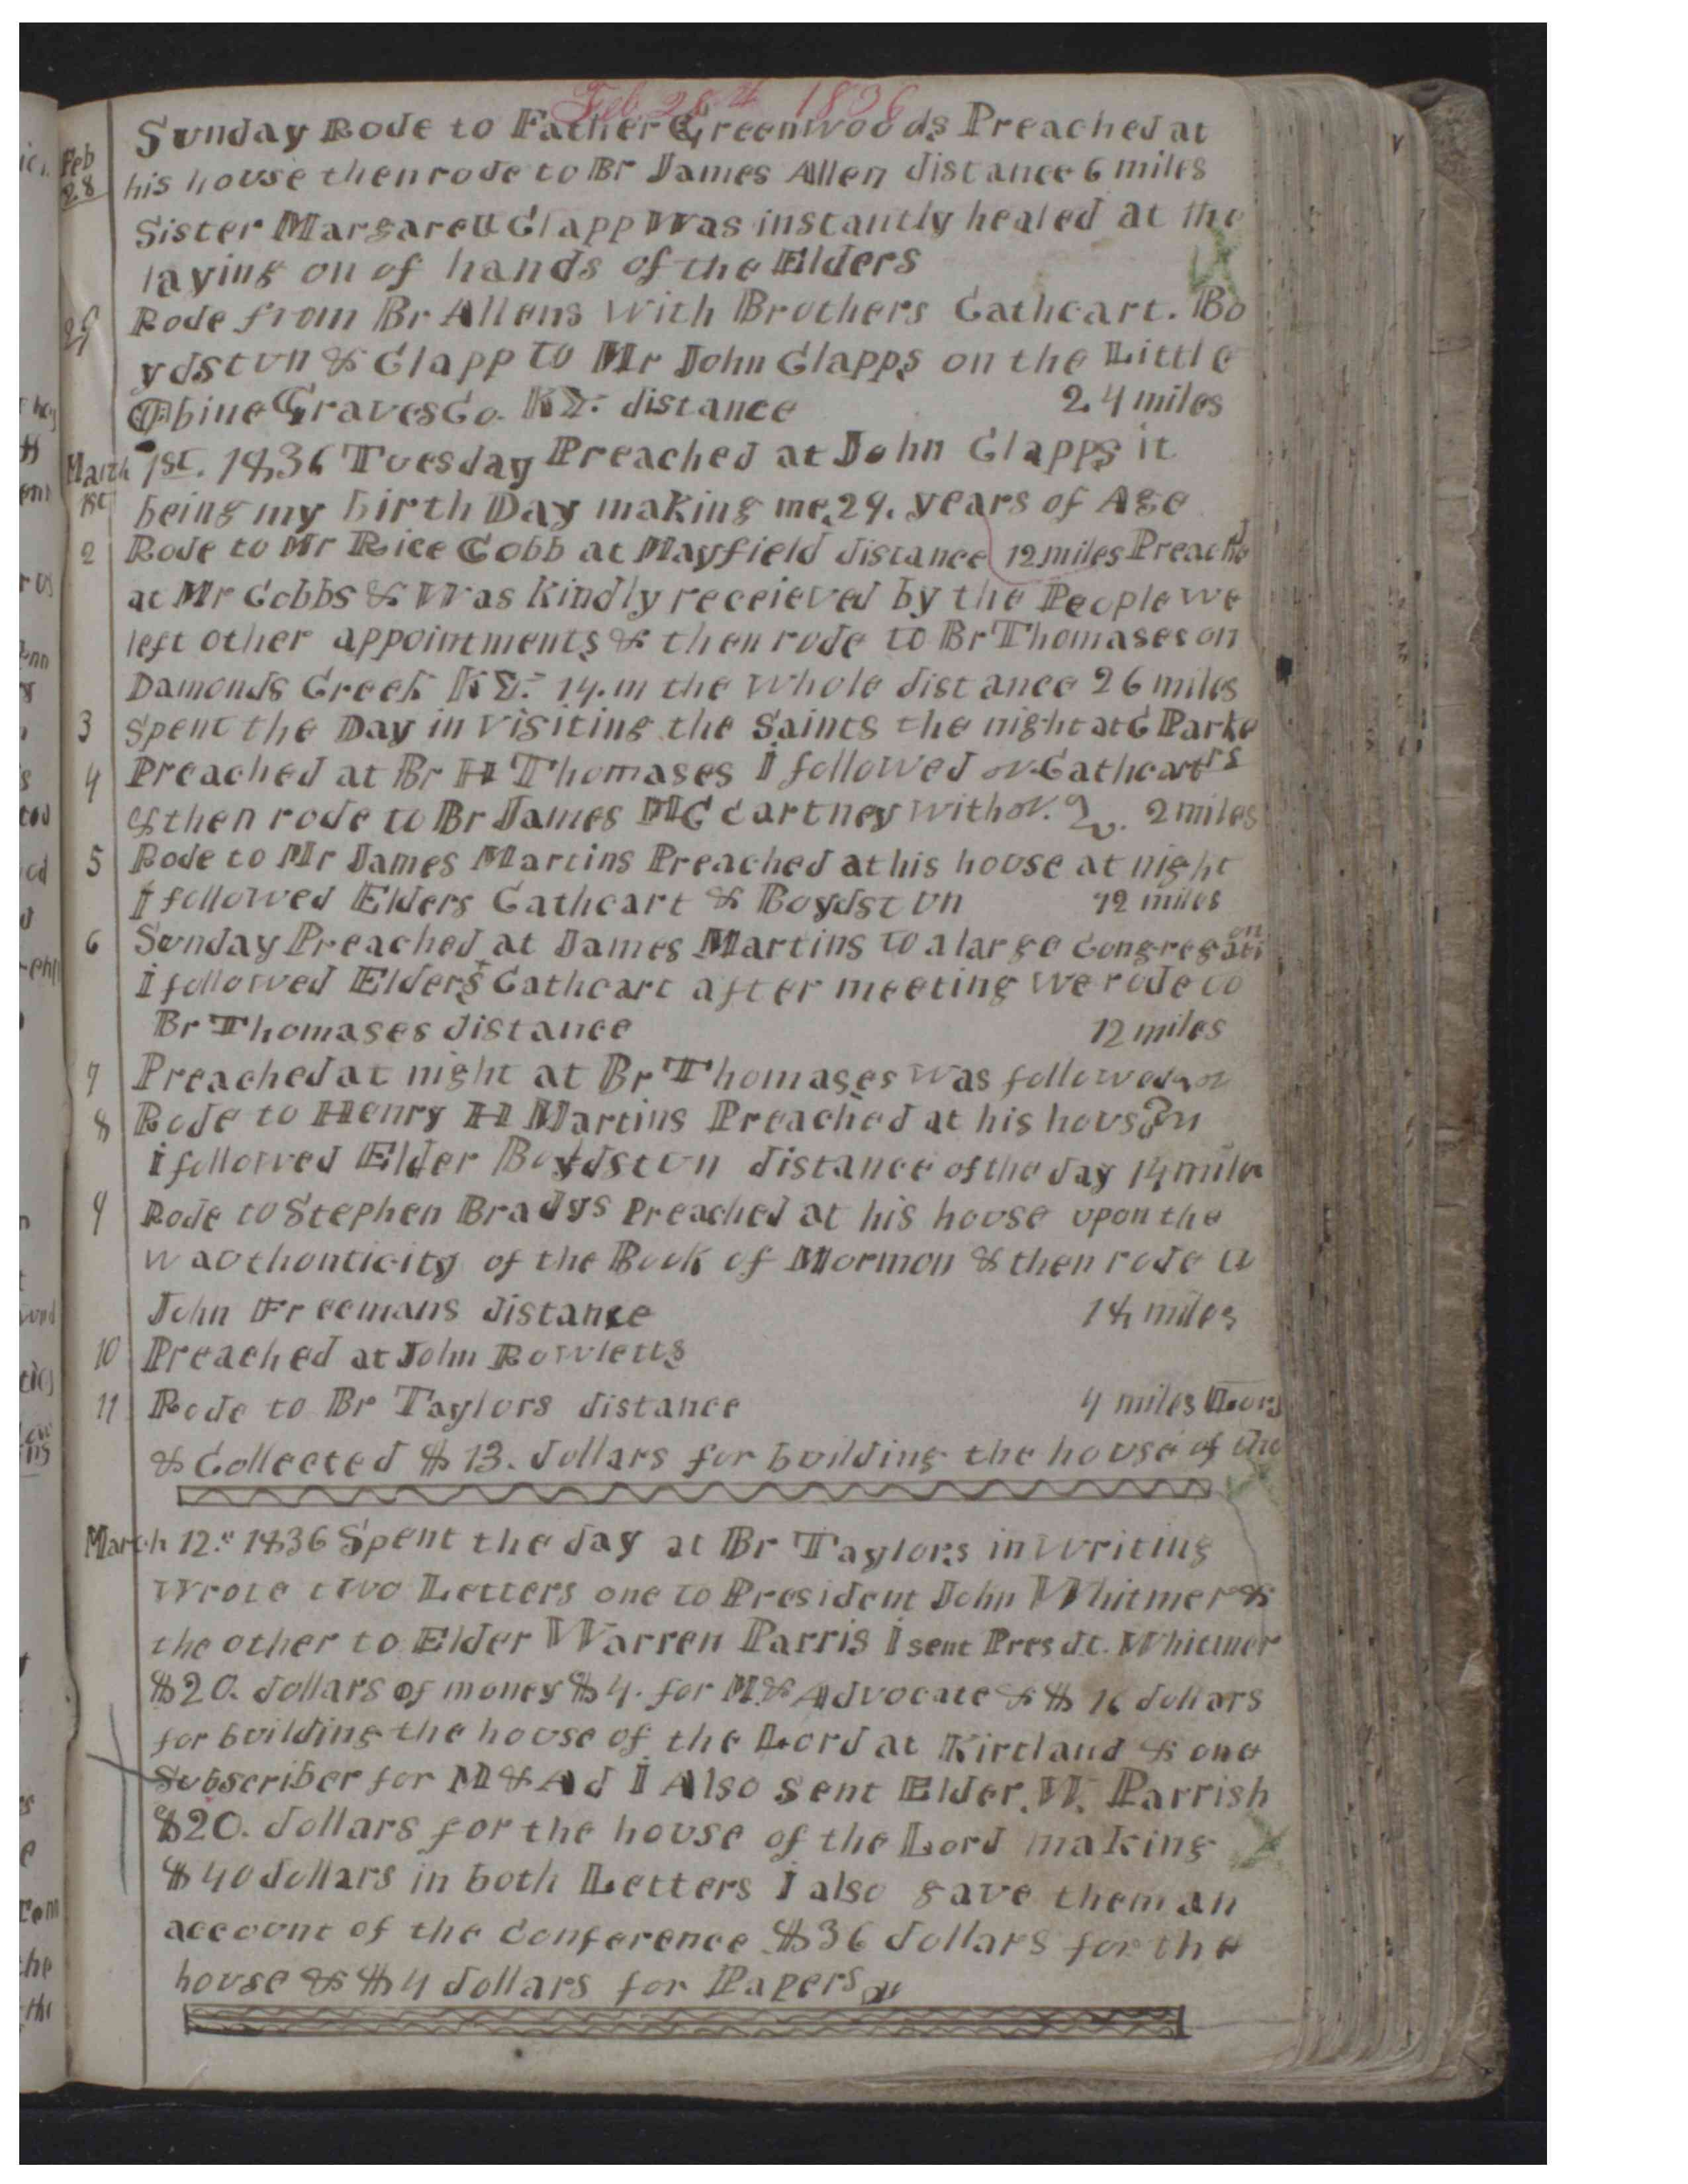 Feb. 28th 1836
Feb 28 Sunday Rode to Father Greenwoods Preached at
his house then rode to Br James Allen distance 6 miles
Sister Margarett Clapp Was instantly healed at the
laying on of hands of the Elders
29 Rode from Br Allens With Brothers Cathcart. Bo
ydstun & Clapp to Mr John Clapps on the Little
Obine Graves Co. KY. distance 24 miles
March 1st 1st. 1836 Tuesday Preached at John Clapps it
being my birth Day making me 29. years of Age
2 Rode to Mr Rice Cobb at Mayfield distance 12 miles Preachd
at Mr Cobbs & Was kindly receieved by the People we
left other appointments & then rode to Br Thomases on
Damonds Creek KY. 14. m the whole distance 26 miles
3 Spent the Day in Visiting the Saints the night at C Parke
rs
4 Preached at Br H Thomases I followed Cathcart
& then rode to Br James McCartney with 2 miles
5 Rode to Mr James Martins Preached at his house at night
I followed Elders Cathcart & Boydstun 12 miles
6 Sunday Preached at James Martins to a large Congregation
I followed Elders Cathcart after meeting we rode to
Br Thomases distance 12 miles
7 Preached at night at Br Thomases was followed
8 Rode to Henry H Martins Preached at his house
I followed Elder Boydstun distance of the day 14 miles
9 Rode to Stephen Bradys Preached at his house upon the
authonticity of the Book of Mormon & then rode to
John Freemans distance 14 miles
10 Preached at John Rowletts
11 Rode to Br Taylors distance 4 miles Lord
& Collected $13. dollars for building the house of the
March 12.th 1836 Spent the day at Br Taylors in writing
Wrote two Letters one to President John Whitmer &
the other to Elder Warren Parris I sent Presdt. Whitmer
$20. dollars of money $4. for M & Advocate & $16 dollars
for building the house of the Lord at Kirtland & one
Subscriber for M & Ad I Also sent Elder. W. Parrish
$20. dollars for the house of the Lord making
$40 dollars in both Letters I also gave them an
account of the Conference $36 dollars for the
house & $4 dollars for Papers